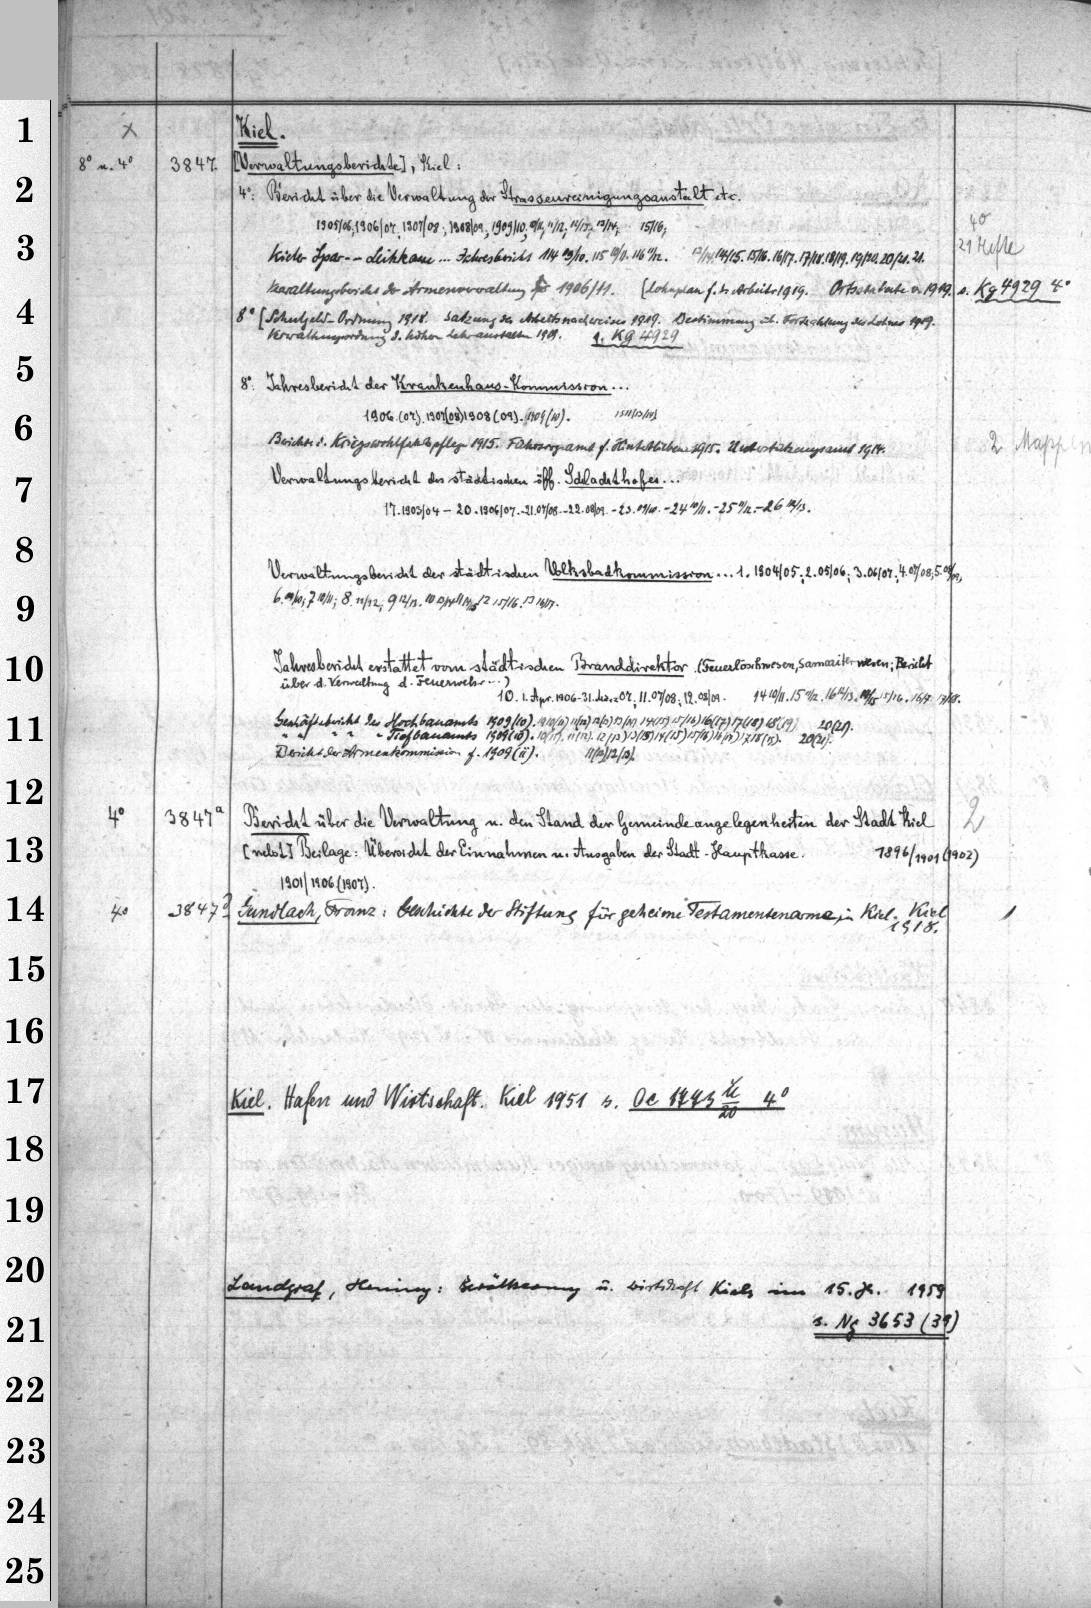 1
2
3
4
5
6
7
8
9
10
11
12
13
14
15
16
17
18
19
20
21
22
23
24
25
Kiel.
8° u. 4° 3847. [Verwaltungsberichte], Kiel:
4°: Bericht über die Verwaltung der Strassenreinigungsanstalt etc.
1905/06, 1906/07, 1907/08, 1908/09, 1909/10, 10/11, 11/12, 12/13, 13/14, 15/16,
4°
21 Hefte
Kieler Spar- Leihkasse ... Jahresbericht 114 09/10. 115 10/11. 116 11/12. 13/14 14/15. 15/16. 16/17. 17/18. 18/19. 19/20. 20/21. 21.
Verwaltungsbericht der Armenverwaltung 1906/11. [Lohnplan f. d. Arbeiter 1919. 1919. s. Kg 4929 4°
8° [Schulgeld-Ordnung 1918. Satzung des Arbeitsnachweises 1919. Bestimmung Lohnes 1919.
1909. s. Kg 4929
8°: Jahresbericht der Krankenhaus-Kommission ...
1906. (07). 1907(08) 1908 (09). 1909 (10).
Berichte d. Kriegswohlfahrtspflege 1915. Fürsorgeamt f. Hinterbliebene 1915. Unterstützungsamt 1914.
2 Mappen
Verwaltungsbericht des städtischen öff. Schlachthofes ...
17. 1903/04 – 20. 1906/07. – 21. 07/08. – 22. 08/09. – 23. 09/10. – 24 10/11. – 25 11/12. – 26 12/13.
Verwaltungsbericht der städtischen Volksbadkommission ... 1. 1904/05; 2. 05/06; 3. 06/07; 4. 07/08; 5. 08/09,
6. 09/10; 7 10/11; 8. 11/12; 9 12/13. 10 13/14 11 14/15 12 15/16. 13 16/17.
Jahresbericht erstattet vom städtischen Branddirektor (Feuerlöschwesen, Samariterwesen; Bericht
über d. Verwaltung d. Feuerwehr ...)
10. 1. Apr. 1906-31. 07, 11. 07/08, 12. 08/09. 14 10/11. 15 11/12. 16 12/13. 15/16. 16/17 17/18.
Geschäftsbericht des Hochbauamts 1909(10). 10(11) 11(12) 12(13) 13(14) 14(15) 15(16) 16(17) 17(18) 18(19) 20(21).
" " " " Tiefbauamts 1909(10). 10(11). 11(12). 12(13) 13(14) 14(15) 15(16) 16(17) 17(18). 20(21).
Bericht der Armenkommission f. 1909(10). 11(12) 12(13).
4° 3847a Bericht über die Verwaltung u. den Stand der Gemeindeangelegenheiten der Stadt Kiel 2
[nebst] Beilage: Übersicht der Einnahmen u. Ausgaben der Stadt-Hauptkasse. 1896/1901 (1902)
1901/1906 (1907).
4° 3847b Gundlach, Franz: Geschichte der Stiftung für geheime Testamentsarme in Kiel. Kiel
1918.
Kiel. Hafen und Wirtschaft. Kiel 1951 s. Oe 1773 4°
20
Landgraf, Henning: Bevölkerung u. Wirtschaft Kiels im 15. Jh. 1959
s. Ng 3653 (39)